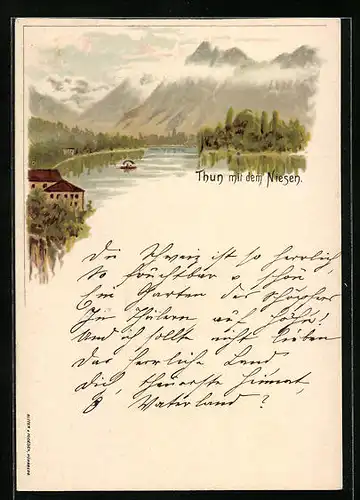 Thun mit dem Niesen.
Die Schweiz ist so herrlich,
So fruchtbar & schön,
Ein Garten des Schöpfers
In Thälern auf Höhn!
Und ich sollte nicht lieben
Das herrliche Land
Die, theuerste Heimat,
& Vaterland?